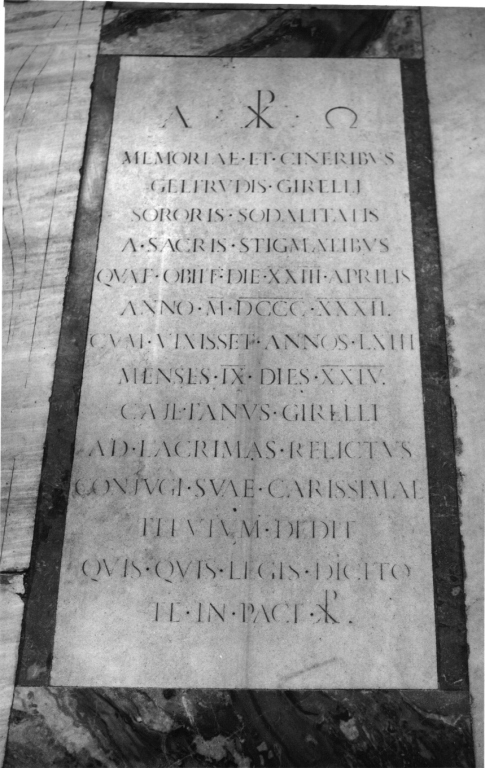 Α · ☧ · Ω
MEMORIAE·ET·CINERIBVS
GELTRVDIS·GIRELLI
SORORIS·SODALITATIS
A·SACRIS·STIGMATIBVS
QVAE·OBIIT·DIE·XXIII·APRILIS
ANNO·M·DCCC·XXXII.
CVM·VIXISSET·ANNOS·LXIII
MENSES·IX·DIES·XXIV.
CAJETANVS·GIRELLI
AD·LACRIMAS·RELICTVS
CONJVGI·SVAE·CARISSIMAE
FLEVIT
M·DEDIT
QVIS·QVIS·LEGIS·DICITO
TE·IN·PACE·☧.